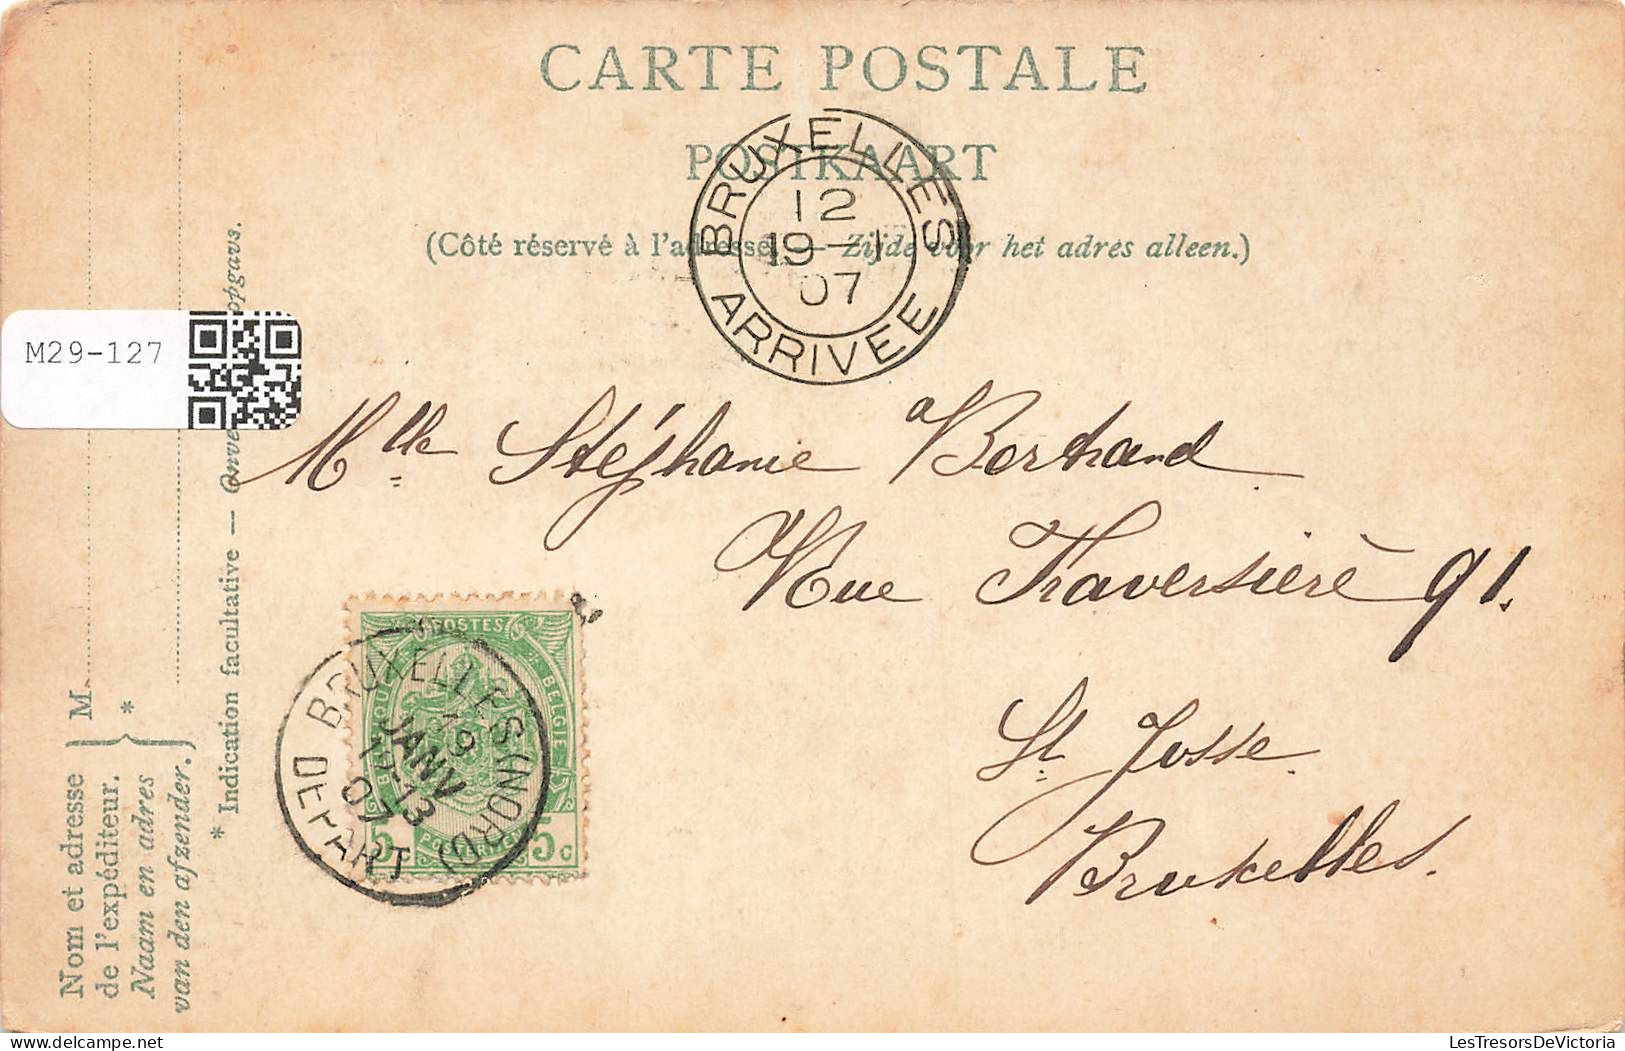 CARTE POSTALE
POSTKAART
(Côté réservé à l'adresse. — Zijde voor het adres alleen.)
BRUXELLES
12
19 — 1
07
ARRIVEE
M29-127
Mlle Stéphanie Bertrand
Rue Traversière 91.
St. Josse.
Bruxelles.
POSTES
BELGIQUE
BELGIE
POSTERIJEN
5c
5c
BRUXELLES (NORD)
19
JANV
12-13
07
DEPART
Nom et adresse
de l'expéditeur.
Naam en adres
van den afzender.
M
*
* Indication facultative —
LesTresorsDeVictoria